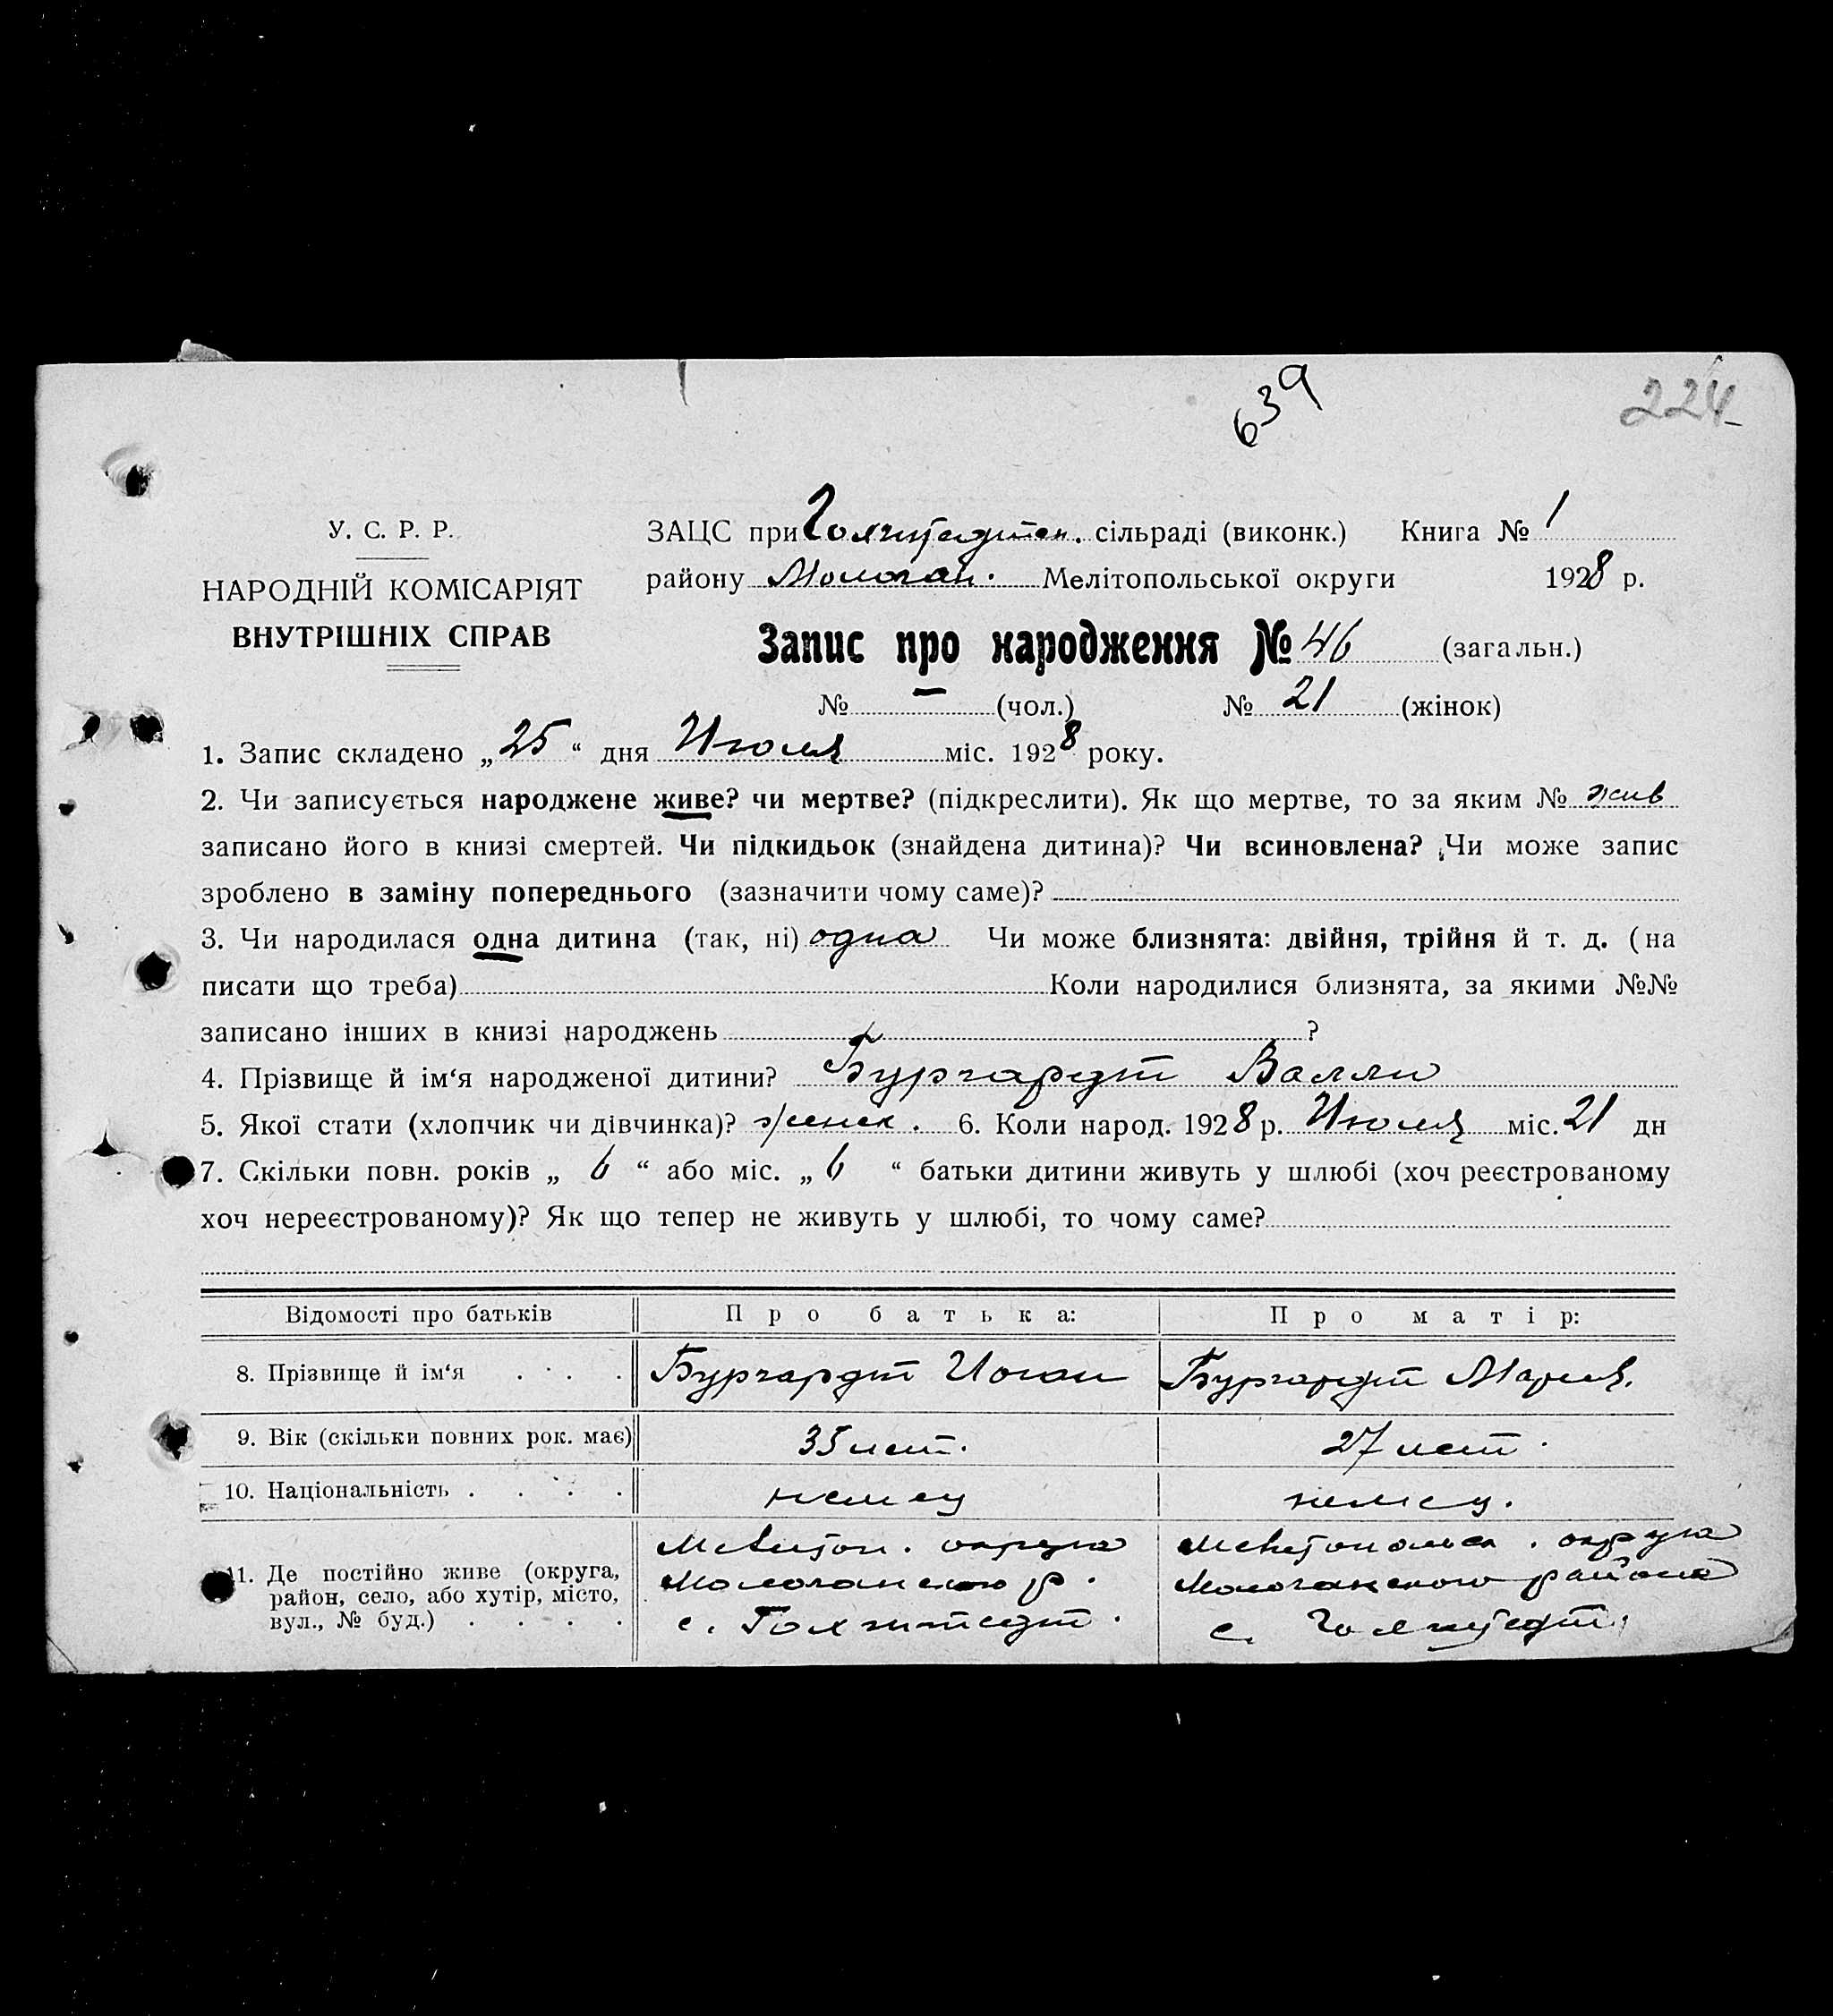 639
224
У. С. Р. Р.
НАРОДНІЙ КОМІСАРІЯТ
ВНУТРІШНІХ СПРАВ
ЗАЦС при сільраді (виконк.) Книга № 1
району Молочан. Мелітопольської округи 1928 р.
Запис про народження № 46 (загальн.)
№ — (чол.) № 21 (жінок)
1. Запис складено „25“ дня Июля міс. 1928 року.
2. Чи записується народжене живе? чи мертве? (підкреслити). Як що мертве, то за яким № жив
записано його в книзі смертей. Чи підкидьок (знайдена дитина)? Чи всиновлена? Чи може запис
зроблено в заміну попереднього (зазначити чому саме)?
3. Чи народилася одна дитина (так, ні) одна Чи може близнята: двійня, трійня й т. д. (на
писати що треба) Коли народилися близнята, за якими №№
записано інших в книзі народжень ?
4. Прізвище й ім‘я народженої дитини? Бургардт Валли
5. Якої стати (хлопчик чи дівчинка)? женск. 6. Коли народ. 1928 р. Июля міс. 21 дн
7. Скільки повн. років „ 6 “ або міс. „ 6 “ батьки дитини живуть у шлюбі (хоч реєстрованому
хоч нереєстрованому)? Як що тепер не живуть у шлюбі, то чому саме?
Відомості про батьків Про батька: Про матір:
8. Прізвище й ім‘я . . . Бургардт Иоган Бургардт Мария.
9. Вік (скільки повних рок. має) 35 лет. 27 лет.
10. Національність . . . . немец немец.
11. Де постійно живе (округа, район, село, або хутір, місто, вул., № буд.) . . . .
Мелитоп. округа
Молочанского р.
с. Голжштедт.
Мелитопольск. округа
Молочанского района
с.